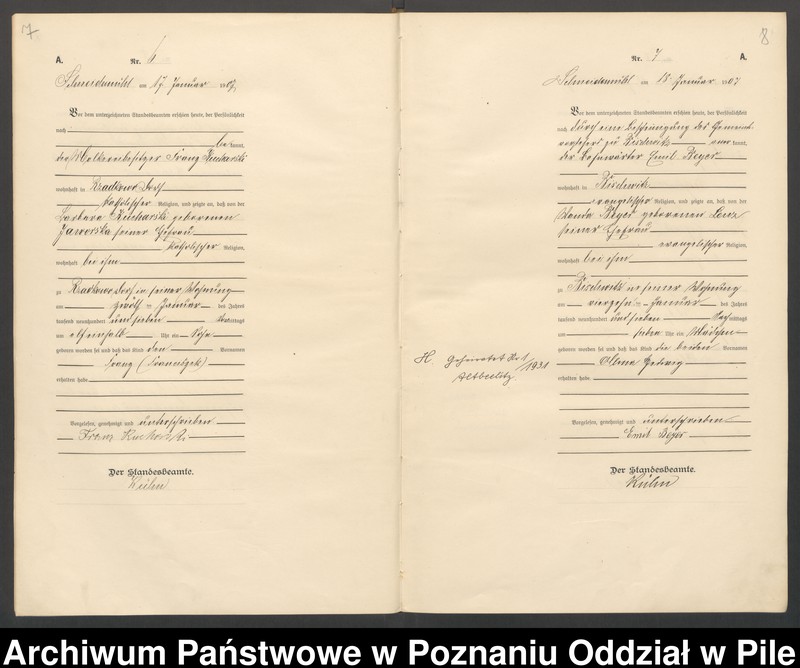 7
A.
Nr. 6
Schneidemühl am 17. Januar 1907.
Vor dem unterzeichneten Standesbeamten erschien heute, der Persönlichkeit
nach
be kannt,
der Molkereibesitzer Franz Kucharski
wohnhaft in
katholischer Religion, und zeigte an, daß von der
Barbara Kucharski geborenen
Jaworska seiner Ehefrau
katholischer Religion,
wohnhaft bei ihm
zu in seiner Wohnung
am zwölften Januar des Jahres
tausend neunhundert und sieben mittags
um elfeinhalb Uhr ein Sohn
geboren worden sei und daß das Kind den Vornamen
Franz (Franciszek)
erhalten habe
Vorgelesen, genehmigt und unterschrieben
Franz Kucharski
Der Standesbeamte.
Kühn
8
Nr. 7
A.
Schneidemühl am 18. Januar 1907
Vor dem unterzeichneten Standesbeamten erschien heute, der Persönlichkeit
nach durch eine Bescheinigung des Gemeinde-
vorstehers zu kannt,
der Bahnwärter Emil Beyer
wohnhaft in
evangelischer Religion, und zeigte an, daß von der
Beyer geborenen Lenz
seiner Ehefrau
evangelischer Religion,
wohnhaft bei ihm
zu in seiner Wohnung
am vierzehnten Januar des Jahres
tausend neunhundert und sieben Nachmittags
um sieben Uhr ein Mädchen
geboren worden sei und daß das Kind die beiden Vornamen
Hedwig
erhalten habe
Vorgelesen, genehmigt und unterschrieben
Emil Beyer
Der Standesbeamte.
Kühn
H Geheiratet /1931
Altbeelitz
Archiwum Państwowe w Poznaniu Oddział w Pile